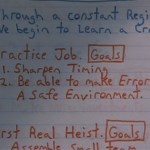 hrough a constant Regi
ve begin to Learn a Cr
ractice Job. Goals
1. Sharpen Timing
2. Be able to make Error
A Safe Environment.
rst Real Heist. Goals
Assemble Small team